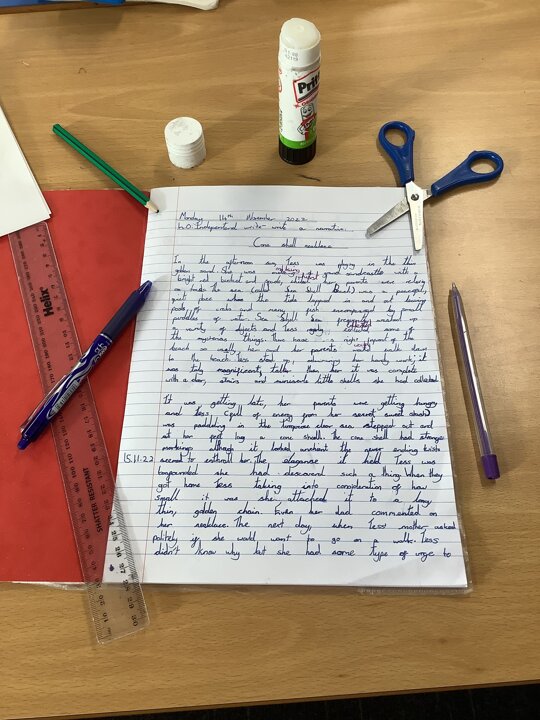 Monday 14th November 2022
L.O: Independent write- write a narrative.
Cone shell necklace
In the afternoon sun, Tess was playing in the thin
golden sand. She was making a grand sandcastle with a
bright red bucket and spade, whilst her parents were relaxing
on the beach was called Sea Shell it was a peaceful
quiet place where the tide lapped in and out leaving
pools of crabs and many fish encompassed by small
puddles of water. Sea Shell Bay frequently washed up
a variety of objects and Tess collected some of
the mysterious things. Tess have a right in front of the
beach so really her and her parents would walk down
to the beach. Tess stood up admiring her handy work; it
was truly magnificent, taller than her it was complete
with a door, stairs and miniscule little shells she had collected.
It was getting late, her parents were getting hungry
and Tess (full of energy from her secret sweet stash)
was paddling in the turquoise clear sea. stepped out and
at her feet lay a cone shell. The cone shell had strange
markings although it looked the never ending
15.11.22
seemed to enthrall her. The elaganse it held. Tess was
she had discoverd such a thing. When they
got home Tess taking into consideration of how
small it was she attached it to a long
thin, golden chain. Even her dad commented on
her necklace. The next day, when Tess mother asked
politely if she would want to go on a walk. Tess
didn't know why but she had some type of urge to
Helix
SHATTER RESISTANT
Pritt